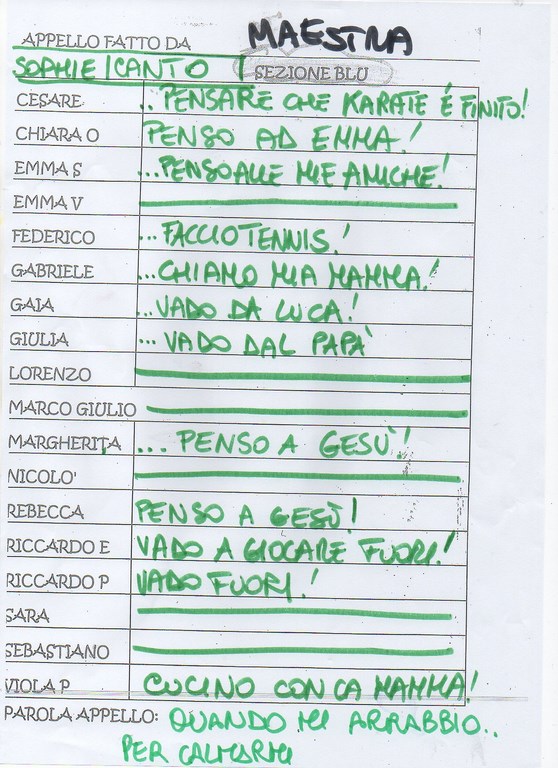 APPELLO FATTO DA MAESTRA
SOPHIE CANTO SEZIONE BLU
CESARE ..PENSARE CHE KARATE É FINITO!
CHIARA O PENSO AD EMMA!
EMMA S ...PENSO ALLE MIE AMICHE!
EMMA V
FEDERICO ...FACCIO TENNIS!
GABRIELE ...CHIAMO MIA MAMMA!
GAIA ...VADO DA LUCA!
GIULIA ...VADO DAL PAPÀ
LORENZO
MARCO GIULIO
MARGHERITA ... PENSO A GESÙ!
NICOLO'
REBECCA PENSO A GESÙ!
RICCARDO E VADO A GIOCARE FUORI!
RICCARDO P VADO FUORI!
SARA
SEBASTIANO
VIOLA P CUCINO CON LA MAMMA!
PAROLA APPELLO: QUANDO MI ARRABBIO..
PER CALMARMI